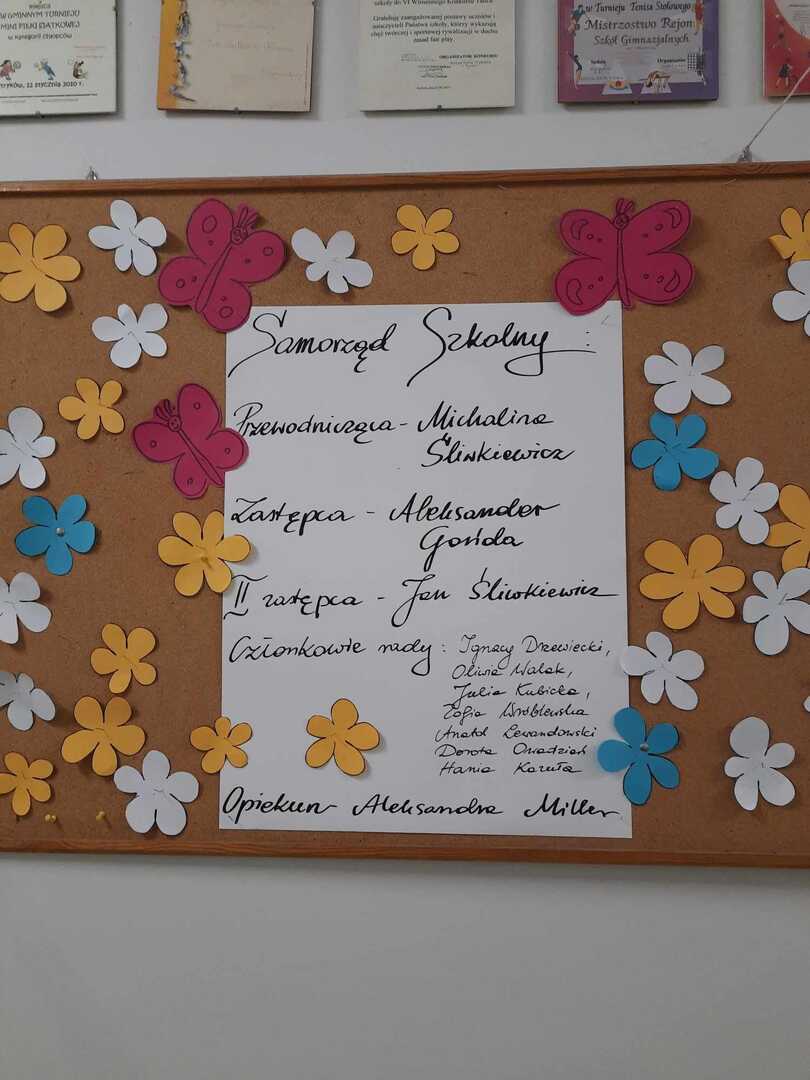 W GMINNYM TURNIEJU
MINI PIŁKI SIATKOWEJ
w kategorii chłopców
22 STYCZNIA 2010 r.
szkoły do VI
Gratuluję zaangażowanej postawy uczniów i
nauczycieli Państwa szkoły, którzy wykazują
chęć twórczej i sportowej rywalizacji w duchu
zasad fair play.
ORGANIZATOR KONKURSU
w Turnieju Tenisa Stołowego
Mistrzostwo Rejonu
Szkół Gimnazjalnych
Sędzia Organizator
Samorząd Szkolny:
Przewodnicząca - Michalina
Śliwkiewicz
Zastępca - Aleksander
II zastępca - Jan Śliwkiewicz
Członkowie rady: Ignacy Drzewiecki,
Oliwia Walak,
Julia Kubicka,
Zofia Wróblewska
Anatol Lewandowski
Dorota
Hania Kozuła
Opiekun - Aleksandra Miller